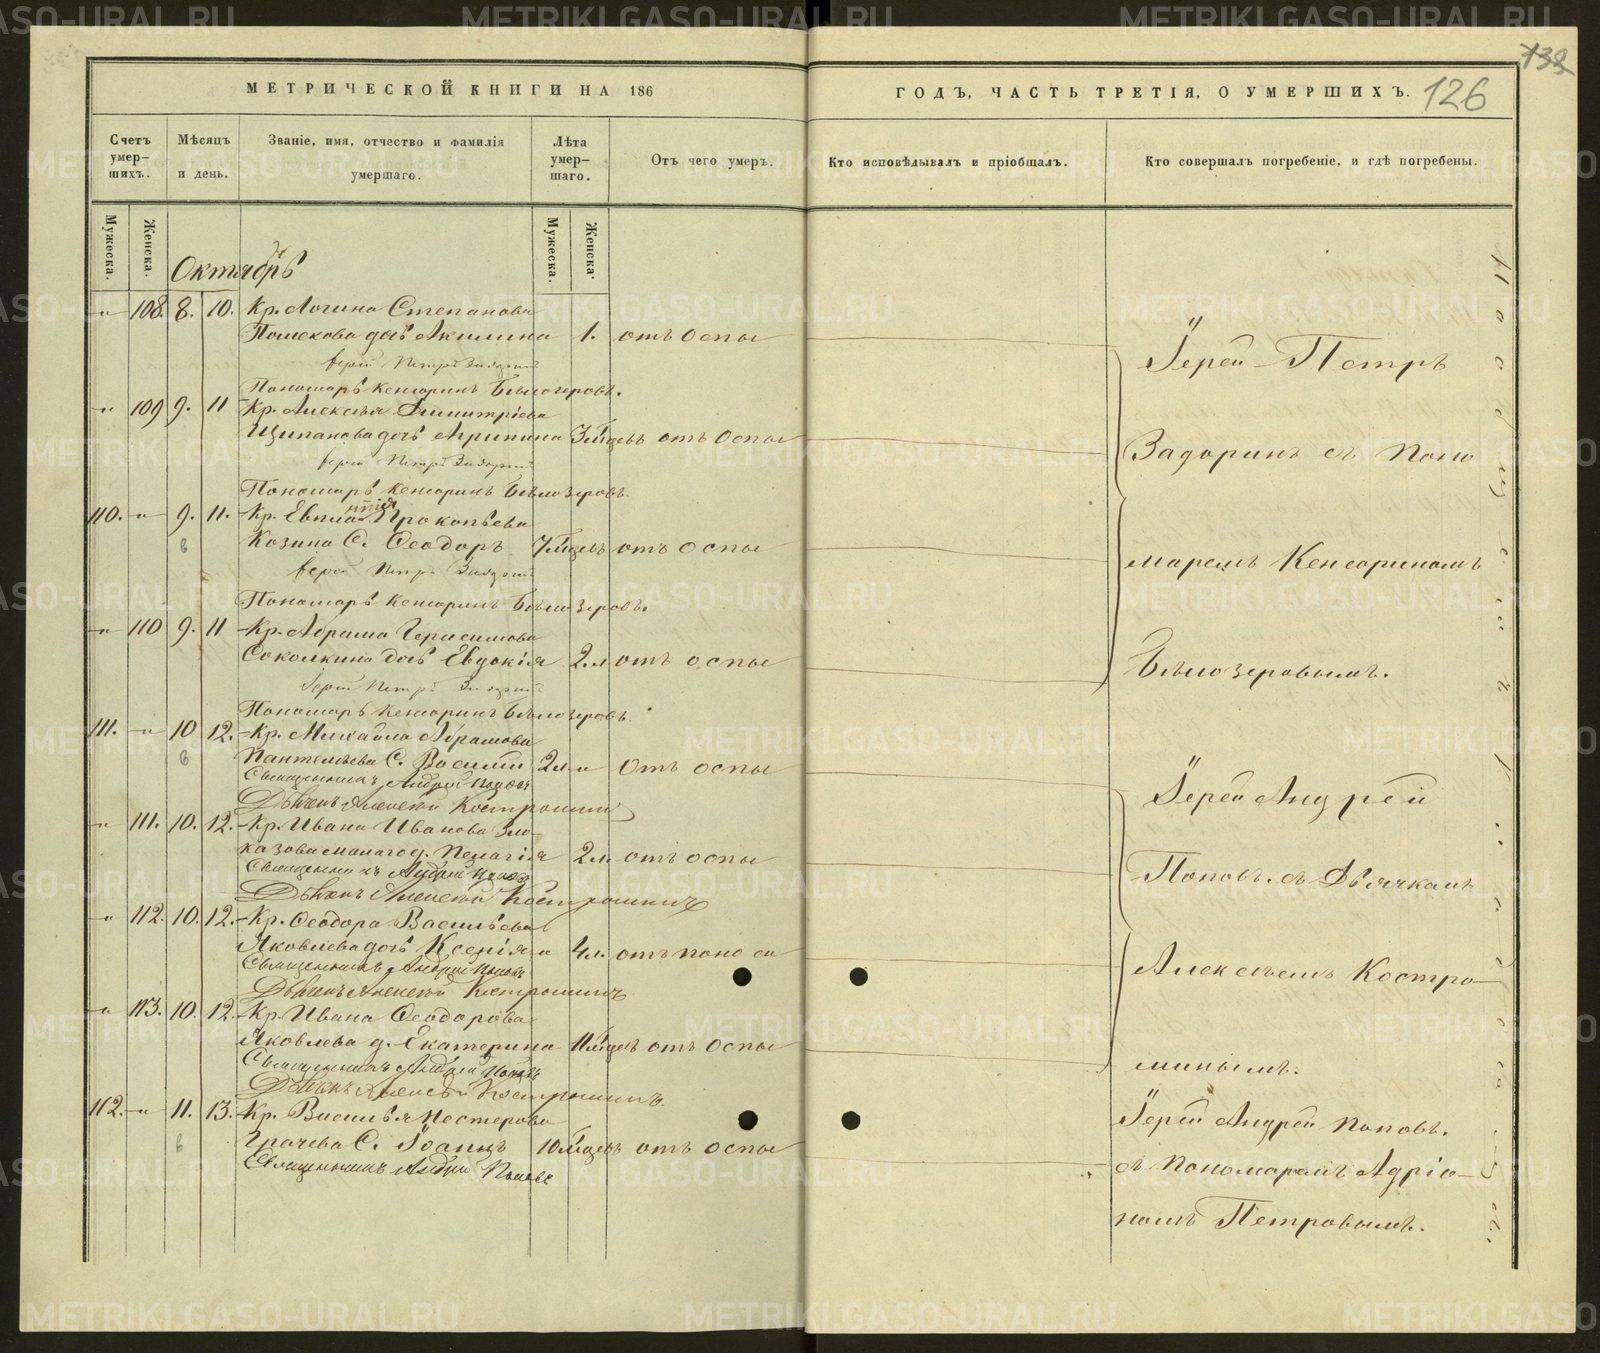 МЕТРИЧЕСКОЙ КНИГИ НА 186
ГОДЪ, ЧАСТЬ ТРЕТІЯ, О УМЕРШИХЪ.
126
Счетъ умер-шихъ.
Мѣсяцъ и день.
Званіе, имя, отчество и фамилія умершаго.
Лѣта умер-шаго.
Отъ чего умеръ.
Кто исповѣдывалъ и пріобщалъ.
Кто совершалъ погребеніе, и гдѣ погребены.
Мужеска.
Женска.
Мужеска.
Женска.
Октябрѣ
108. 8. 10. Кр. Логина Степанова
дочь Акилина 1. отъ оспы
Пономарь Кенсоринъ Бѣлозеровъ.
109 9. 11 Кр. Алексѣя Димитріева
Щипанова дочь Агрипина 3 мѣсцъ отъ оспы
Пономарь Кенсоринъ Бѣлозеровъ.
110. 9. 11. Кр. Прокопьева
Козина С. Ѳеодоръ 7 мѣсцъ отъ оспы
Пономарь Кенсоринъ Бѣлозеровъ.
110 9. 11 Кр. Абрама Герасимова
Соколкина дочь Евдокія 2 л отъ оспы
Пономарь Кенсоринъ Бѣлозеровъ.
111. 10 12. Кр. Михаила Абрамова
Пантелѣева С. Василій 2 л отъ оспы
Священникъ Андрей Поповъ
Дьячекъ Алексѣй Костроминъ
111. 10. 12. Кр. Ивана Иванова Зло-
казова д. Пелагія 2 л. отъ оспы
Священникъ Андрей Поповъ
Дьячекъ Алексѣй Костроминъ
112. 10. 12. Кр. Ѳеодора Васильева
Яковлева дочь Ксенія 4 л. отъ поноса
Священникъ Андрей Поповъ
Дьячекъ Алексѣй Костроминъ
113. 10. 12. Кр. Ивана Ѳеодорова
Яковлева д. Екатерина 11 мѣсцъ отъ оспы
Священникъ Андрей Поповъ
Дьячекъ Алексѣй Костроминъ.
112. 11. 13. Кр. Василья Нестерова
Грачева С. Іоаннъ 10 мѣсцъ отъ оспы
Священникъ Андрей Поповъ
Іерей Петръ
Задоринъ съ Поно
маремъ Кенсориномъ
Бѣлозеровымъ.
Іерей Андрей
Поповъ. съ Дьячкомъ
Алексѣемъ Костро-
минымъ.
Іерей Андрей Поповъ.
съ Пономаремъ Адріа-
номъ Петровымъ.
METRIKI.GASO-URAL.RU